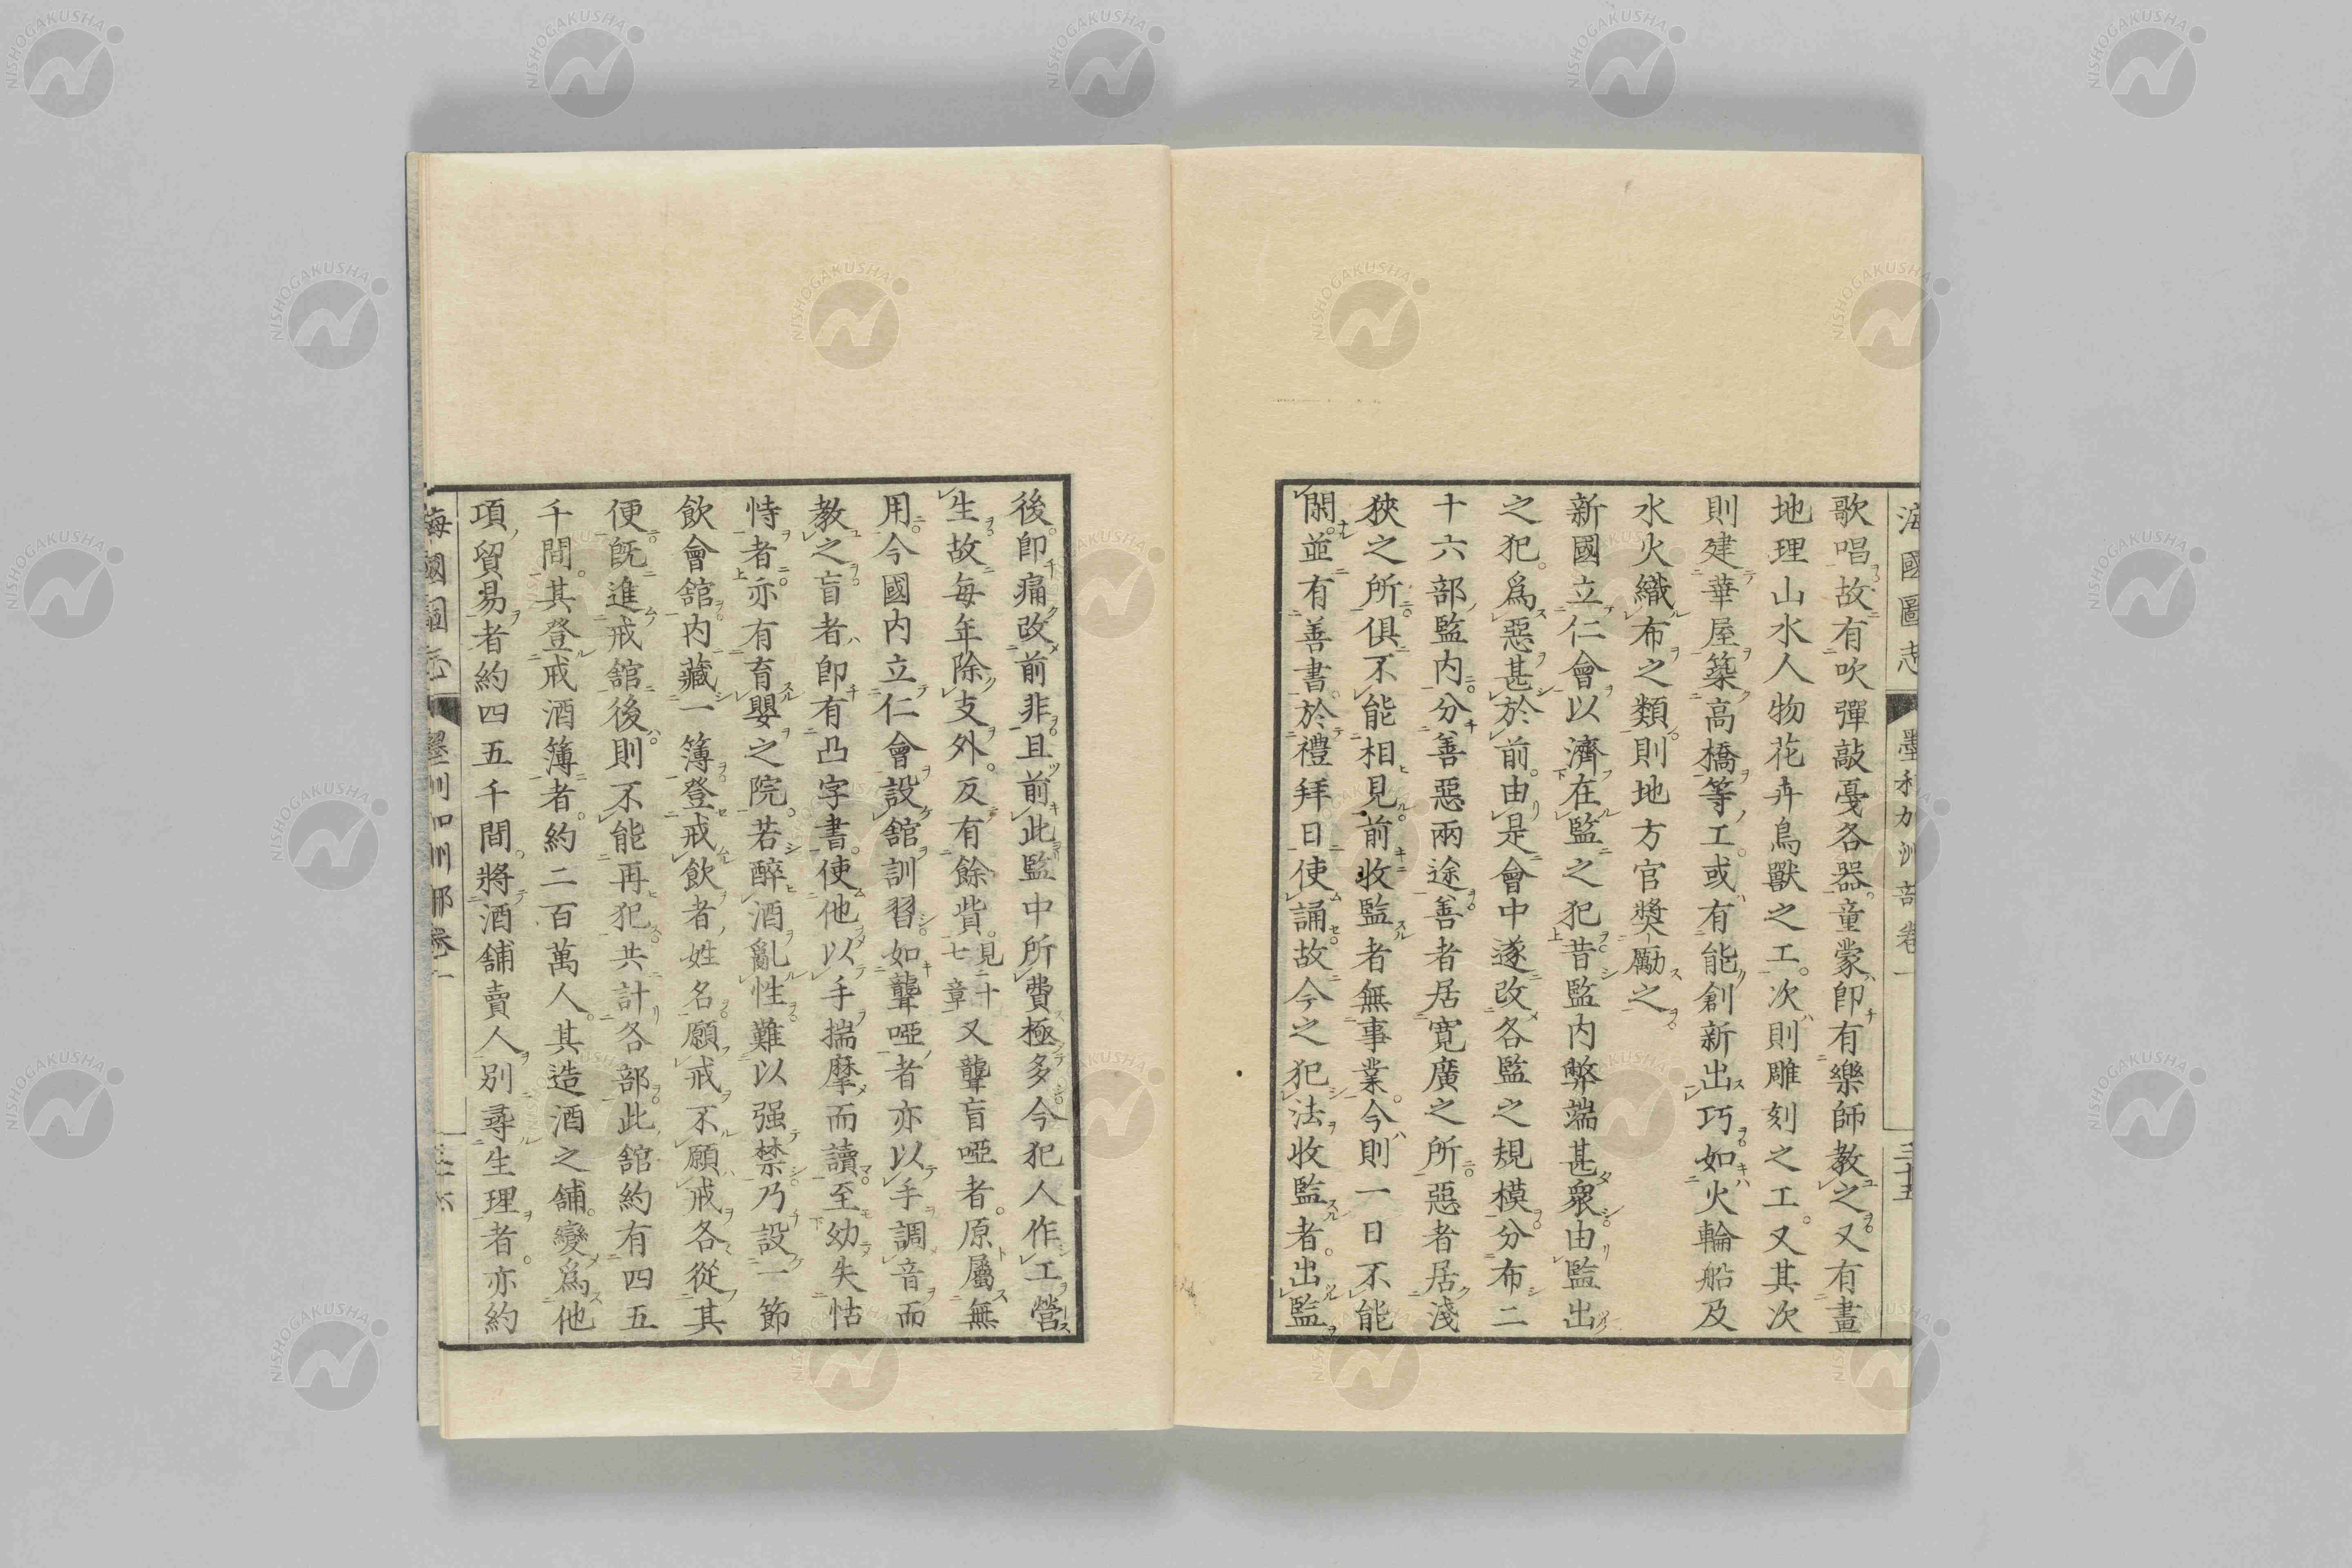 海國圖志 墨利加洲部卷一 三十五
歌唱故有吹彈敲戞各器。童蒙即有樂師教之又有畫
地理山水人物花卉鳥獸之工。次則雕刻之工。又其次
則建華屋築高橋等工。或有能創新出巧如火輪船及
水火織布之類。則地方官奬勵之。
新國立仁會以濟在監之犯昔監内弊端甚衆由監出
之犯。爲惡甚於前。由是會中遂改各監之規模分布二
十六部監内。分善惡兩途善者居寛廣之所惡者居淺
狹之所。俱不能相見。前收監者無事業。今則一日不能
閑。並有善書。於禮拜日使誦故今之犯法收監者。出監
後。即痛改前非且前此監中所費極多今犯人作工營
生。故每年除支外。反有餘貲。見二十七章又聾盲啞者。原屬無
用。今國内立仁會設舘訓習如聾啞者亦以手調音而
教之。盲者即有凸字書。使他以手揣摩而讀。至幼失怙
恃者。亦有育嬰之院。若醉酒亂性難以强禁。乃設一節
飲會舘内藏一簿登戒飲者姓名。願戒不願戒各從其
便。既進戒舘後。則不能再犯共計各部此舘約有四五
千間。其登戒酒簿者。約二百萬人。其造酒之舖。變爲他
項貿易者約四五千間。將酒舖賣人別尋生理者。亦約
海國圖志 墨利加洲部卷一 三十六